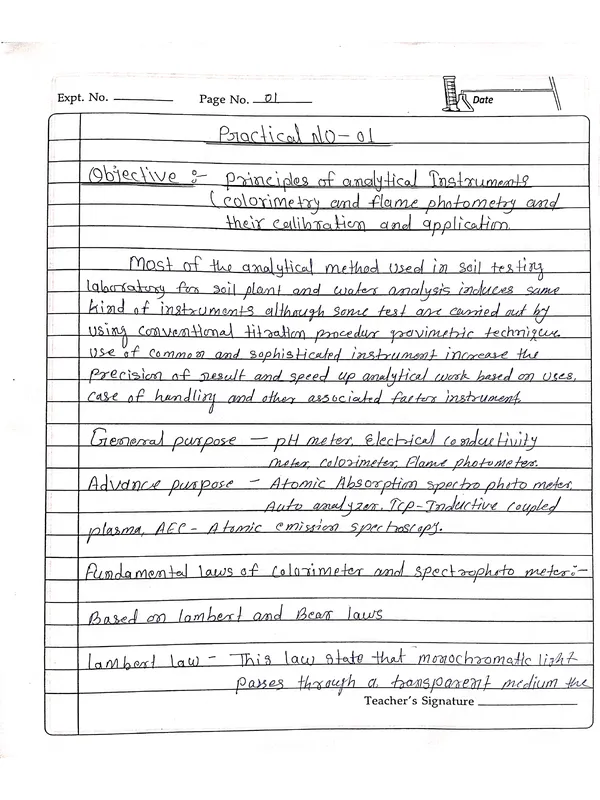 Expt. No.
Page No. 01
Date
Practical NO-01
Objective :- Principles of analytical Instruments
(colorimetry and flame photometry and
their calibration and application.
Most of the analytical method used in soil testing
laboratory for soil plant and water analysis induces same
kind of instruments although some test are carried out by
using conventional titration procedur gravimetric technique.
use of common and sophisticated instrument increase the
precision of result and speed up analytical work based on uses,
case of handling and other associated factor instrument.
General purpose - pH meter, Electrical conductivity
meter, colorimeter, Flame photometer.
Advance purpose - Atomic Absorption spectro photo meter,
Auto analyzer, ICP-Inductive coupled
plasma, AEC- Atomic emission spectroscopy.
Fundamental laws of colorimeter and spectrophoto meter:-
Based on lambert and Bear laws
Lambert law - This law state that monochromatic light
passes through a transparent medium the
Teacher's Signature